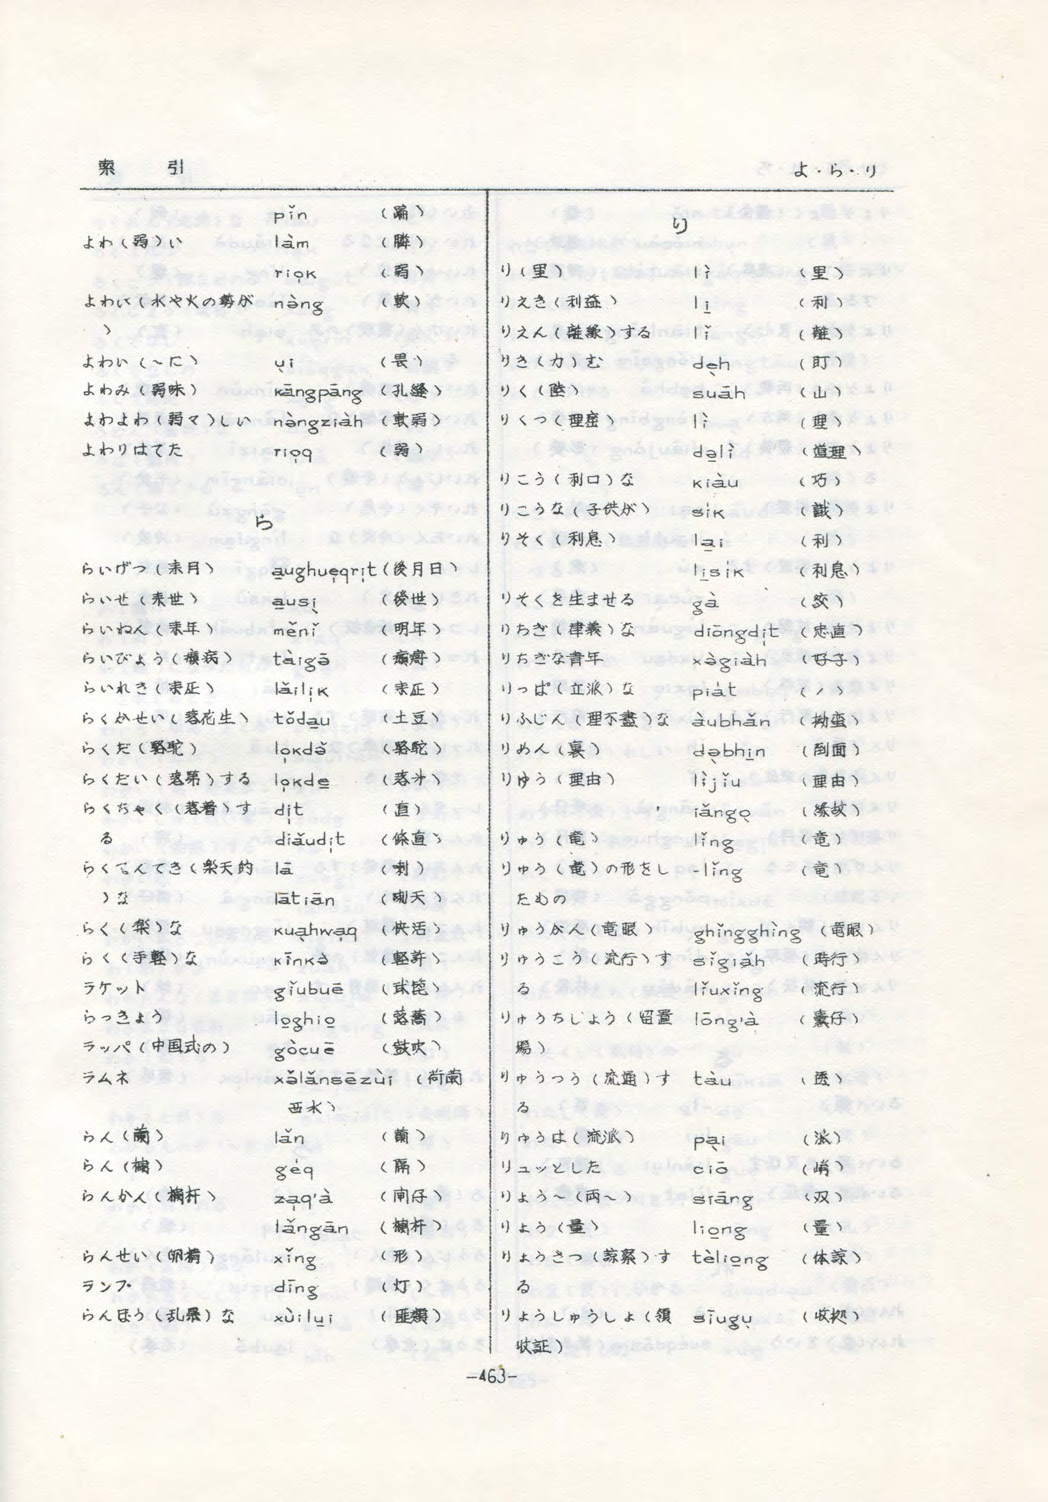 索 引
よ・ら・り
pǐn
よわ(弱)い làm
riọk (弱)
よわい(水や火の勢が nàng (軟)
)
よわい(～に) ụi (畏)
よわみ(弱味) kāngpāng (孔縫)
よわよわ(弱々)しい nàngziàh (軟弱)
よわりはてた riọq (弱)
ら
らいげつ(来月) a̱ughuẹqrịt (後月日)
らいせ(来世) a̱usị (後世)
らいねん(来年) měnǐ (明年)
らいびょう(癩病) tàigə̄
らいれき(来歴) lǎilịk
らくかせい(落花生) tǒda̱u (土豆)
らくだ(駱駝) lọkdə̀ (駱駝)
らくだい(落第)する lọkde̱
らくちゃく(落着)す dịt (直)
る diǎudịt (條直)
らくてんてき(楽天的 lā
)な lātiān
らく(楽)な kuạhwạq (快活)
らく(手軽)な kīnkə̀
ラケット gǐubuē
らっきょう lo̱ghio̱ (落蕎)
ラッパ(中国式の) gòcuē (鼓吹)
ラムネ xə̌lǎnsēzùi (荷蘭
西水)
らん(蘭) lǎn (蘭)
らん(欄) géq (隔)
らんかん(欄杆) zạq'à
lǎngān (欄杆)
らんせい(卵精) xǐng (形)
ランプ dīng (灯)
らんぼう(乱暴)な xùilụi (匪類)
り
り(里) lì (里)
りえき(利益) li̱ (利)
りえん(離縁)する lǐ (離)
りき(力)む dẹh
りく(陸) suāh (山)
りくつ(理窟) lì (理)
də̱lì (道理)
りこう(利口)な kiàu (巧)
りこうな(子供が) sik (識)
りそく(利息) la̱i (利)
li̱sik (利息)
りそくを生ませる gà (絞)
りちぎ(律義)な diōngdịt (忠直)
りちぎな青年 xə̀giàh (好子)
りっぱ(立派)な piát
りふじん(理不盡)な àubhǎn (拗蛮)
りめん(裏) dəbhi̱n
りゆう(理由) lìjǐu (理由)
iǎngọ (縁故)
りゅう(竜) lǐng (竜)
りゅう(竜)の形をし -lǐng (竜)
たもの
りゅうがん(竜眼) ghǐngghìng (竜眼)
りゅうこう(流行)す sǐgiǎh (時行)
る lǐuxǐng (流行)
りゅうちじょう(留置 lǒng'à
場)
りゅうつう(流通)す tàu (透)
る
りゅうは(流派) pại (派)
リュッとした ciō
りょう～(両～) siāng (双)
りょう(量) lio̱ng (量)
りょうさつ(諒察)す tèlio̱ng (体諒)
る
りょうしゅうしょ(領 sīugụ
収証)
-463-